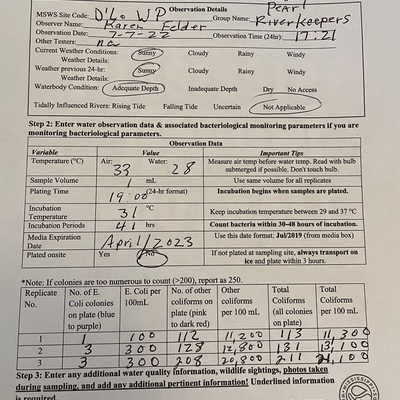 Observation Details
MSWS Site Code: D'Lo WP Group Name: Pearl Riverkeepers
Observer Name: Karen Felder
Observation Date: 7-7-22 Observation Time (24hr): 17:21
Other Testers: na
Current Weather Conditions: Sunny Cloudy Rainy Windy
Weather Details:
Weather previous 24-hr: Sunny Cloudy Rainy Windy
Weather Details:
Waterbody Condition: Adequate Depth Inadequate Depth Dry No Access
Tidally Influenced Rivers: Rising Tide Falling Tide Uncertain Not Applicable
Step 2: Enter water observation data & associated bacteriological monitoring parameters if you are
monitoring bacteriological parameters.
Observation Data
Variable Value Important Tips
Temperature (°C) Air: 33 Water: 28 Measure air temp before water temp. Read with bulb
submerged if possible. Don't touch bulb.
Sample Volume 1 mL Use same volume for all replicates
Plating Time 19:00 (24-hr format) Incubation begins when samples are plated.
Incubation Temperature 31 °C Keep incubation temperature between 29 and 37 °C
Incubation Periods 41 hrs Count bacteria within 30-48 hours of incubation.
Media Expiration Date April/2023 Use this date format: Jul/2019 (from media box)
Plated onsite Yes No If not plated at sampling site, always transport on
ice and plate within 3 hours.
*Note: If colonies are too numerous to count (>200), report as 250.
Replicate No. No. of E. Coli colonies on plate (blue to purple) E. Coli per 100mL No. of other coliforms on plate (pink to dark red) Other coliforms per 100mL Total Coliforms (all colonies on plate) Total Coliforms per 100 mL
1 1 100 112 11,200 113 11,300
2 3 300 128 12,800 131 13,100
3 3 300 208 20,800 211 21,100
Step 3: Enter any additional water quality information, wildlife sightings, photos taken
during sampling, and add any additional pertinent information! Underlined information
is required.